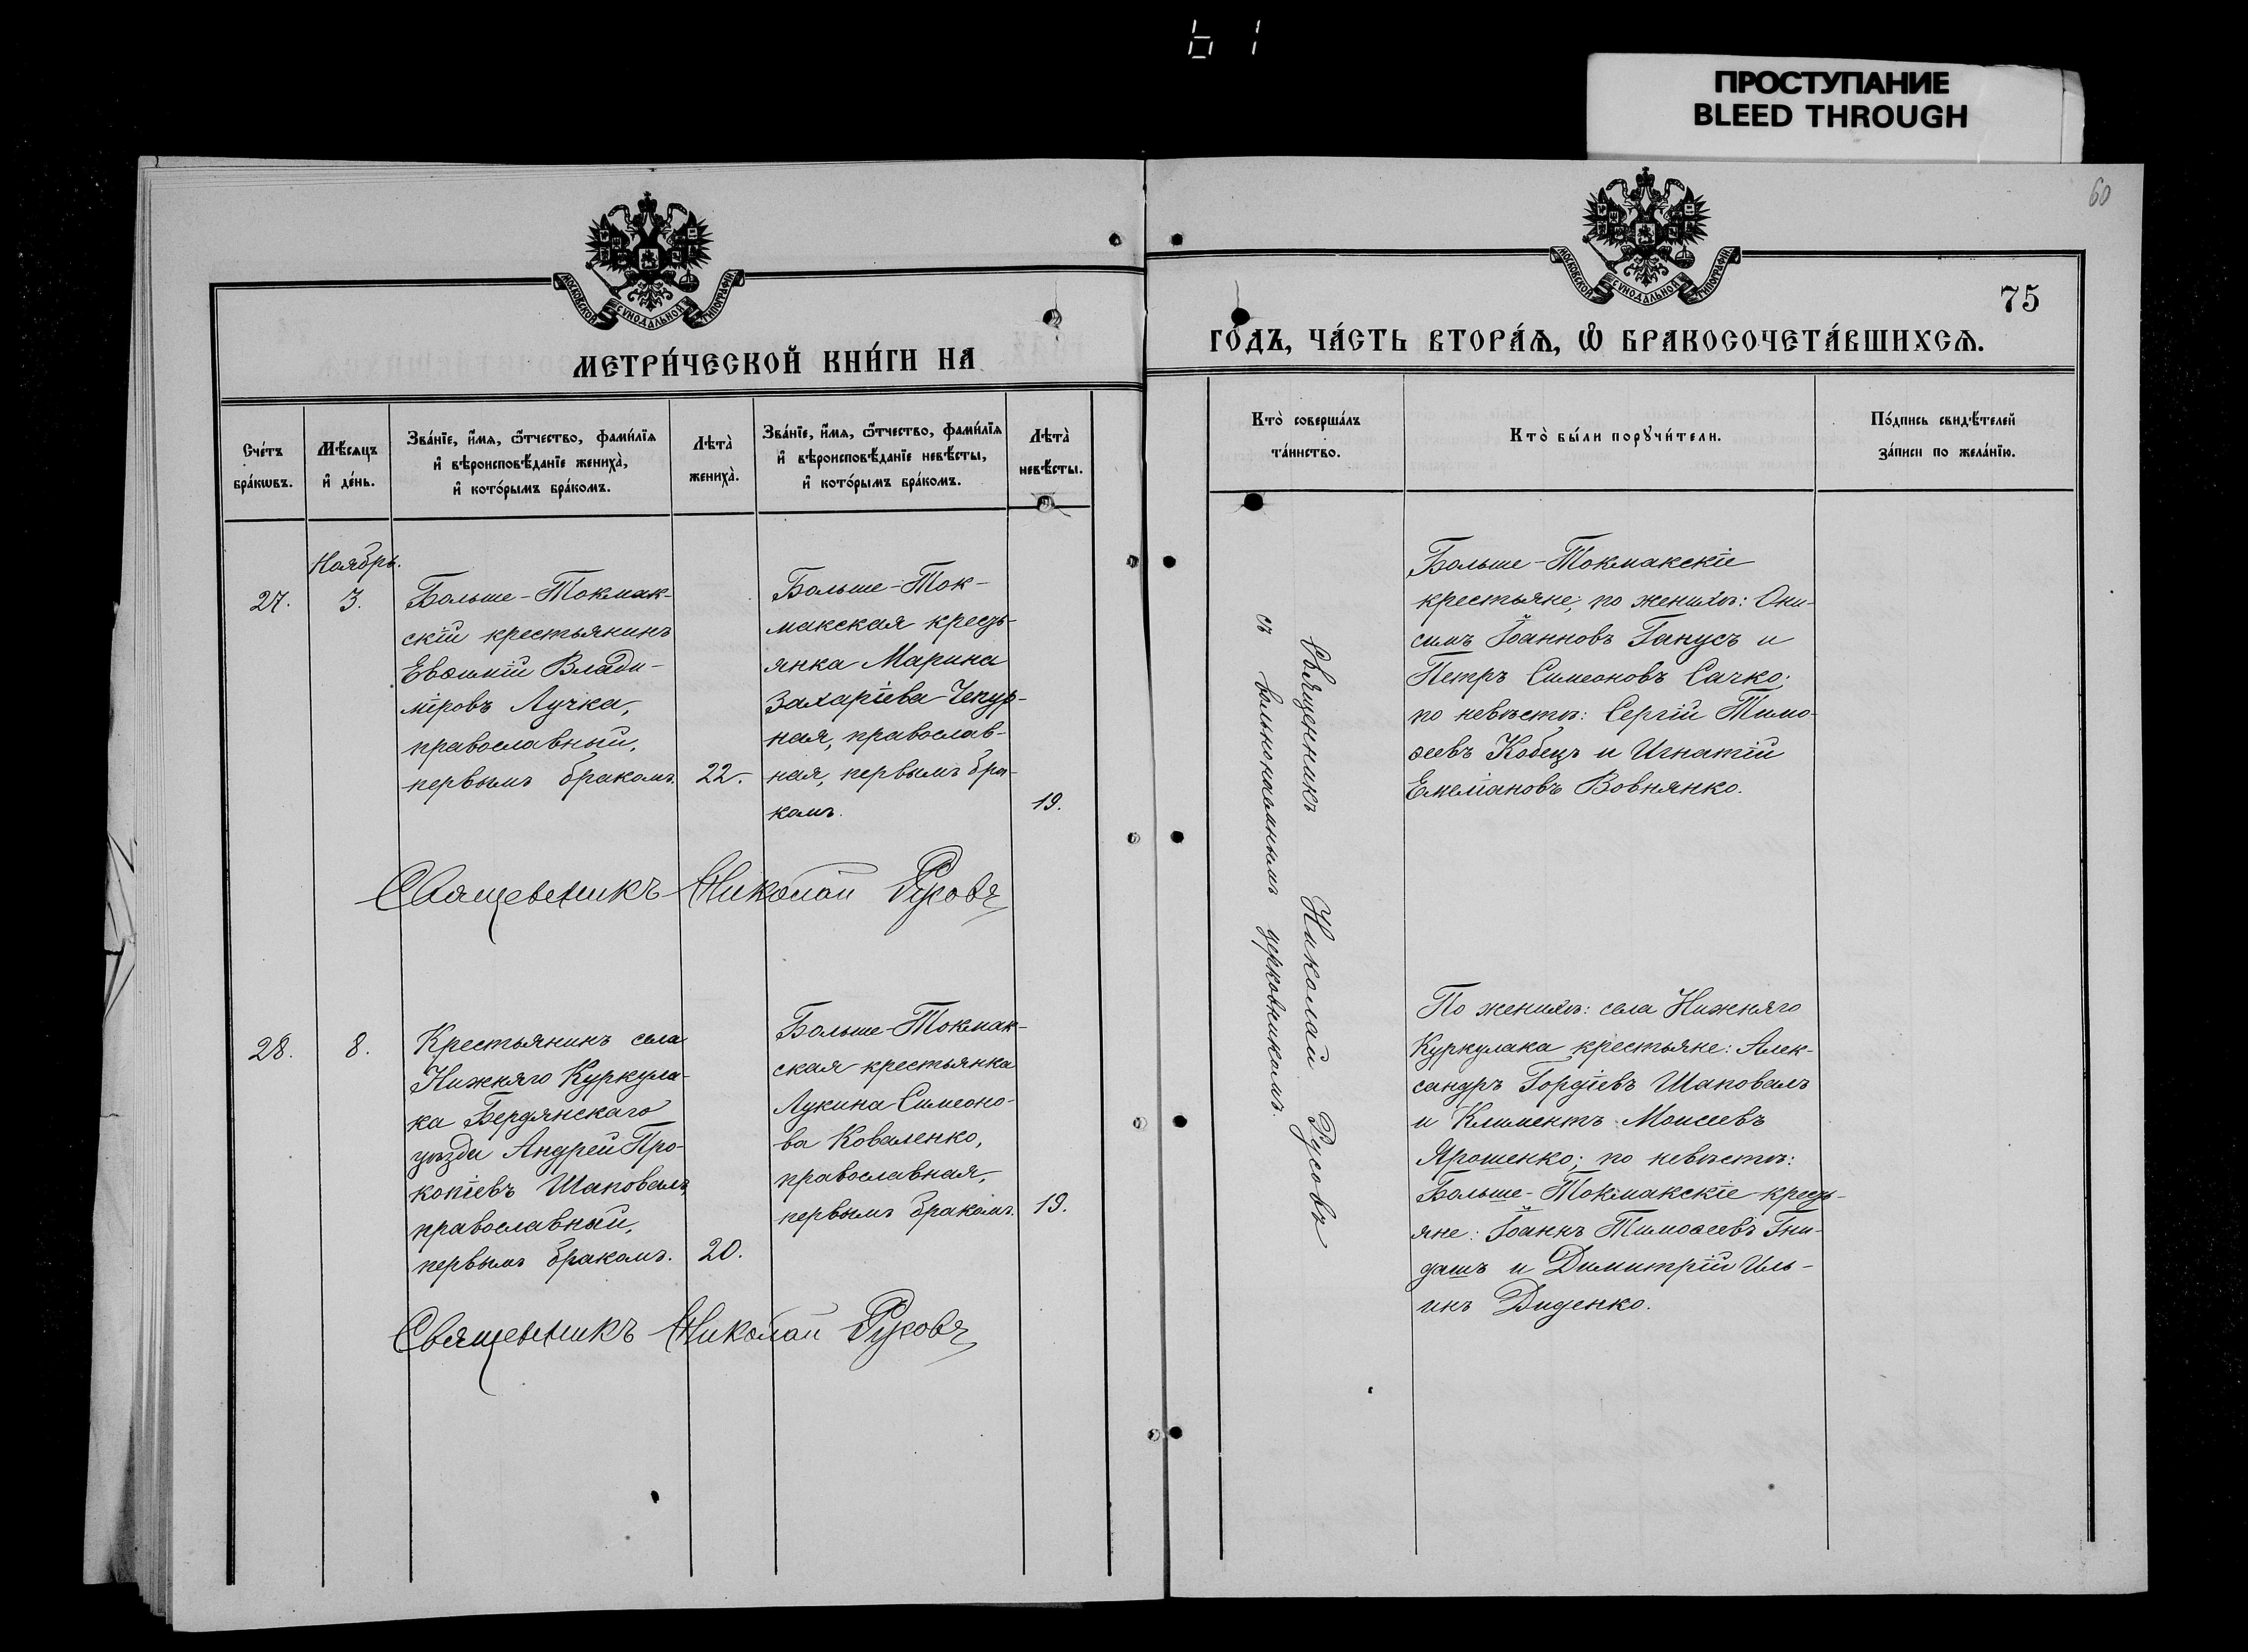 ПРОСТУПАНИЕ
BLEED THROUGH
60
МОСКОВСКОЙ СУНОДАЛЬНОЙ ТИПОГРАФІИ
МОСКОВСКОЙ СУНОДАЛЬНОЙ ТИПОГРАФІИ
75
МЕТРИ́ЧЕСКОЙ КНИ́ГИ НА
ГО́ДЪ, ЧА́СТЬ ВТОРА́Ѧ, Ѡ҆ БРАКОСОЧЕТА́ВШИХСѦ.
Сче́тъ
бра́кѡвъ.
Мѣ́сѧцъ
и҆ де́нь.
Зва́нїе, и҆́мѧ, ѻ҆́тчество, фамѝлїѧ
и҆ вѣроисповѣ́данїе жениха̀,
и҆ кото́рымъ бра́комъ.
Лѣта̀
жениха̀.
Зва́нїе, и҆́мѧ, ѻ҆́тчество, фамѝлїѧ
и҆ вѣроисповѣ́данїе невѣ́сты,
и҆ кото́рымъ бра́комъ.
Лѣта̀
невѣ́сты.
Кто̀ соверша́лъ
та́инство.
Кто̀ бы́ли порꙋчи́тели.
По́дпись свидѣ́телей
за́писи по жела́нїю.
Ноябрь.
27.
3.
Больше-Токмак-
скій крестьянинъ
Евѳимій Влади-
міровъ Лучка,
православный,
первымъ бракомъ.
22.
Больше-Ток-
макская кресть-
янка Марина
Захаріева Чепур-
ная, православ-
ная, первымъ бра-
комъ.
19.
Священникъ Николай Русовъ
Священникъ Николай Русовъ
съ вольнонаемнымъ церковникомъ.
Больше-Токмакскіе
крестьяне; по женихѣ: Они-
симъ Іоанновъ Ганусъ и
Петръ Симеоновъ Сачко;
по невѣстѣ: Сергій Тимо-
ѳеевъ Кобецъ и Игнатій
Емеліановъ Вовнянко.
28.
8.
Крестьянинъ села
Нижняго Куркула-
ка Бердянскаго
уѣзда Андрей Про-
копіевъ Шаповалъ,
православный,
первымъ бракомъ.
20.
Больше-Токмак-
ская крестьянка
Лукина Симеоно-
ва Коваленко,
православная,
первымъ бракомъ.
19.
Священникъ Николай Русовъ
По женихѣ: села Нижняго
Куркулака крестьяне: Алек-
сандръ Гордіевъ Шаповалъ
и Климентъ Моисеевъ
Ярошенко; по невѣстѣ:
Больше-Токмакскіе кресть-
яне: Іоаннъ Тимоѳеевъ Гни-
дашъ и Димитрій Иль-
инъ Диденко.